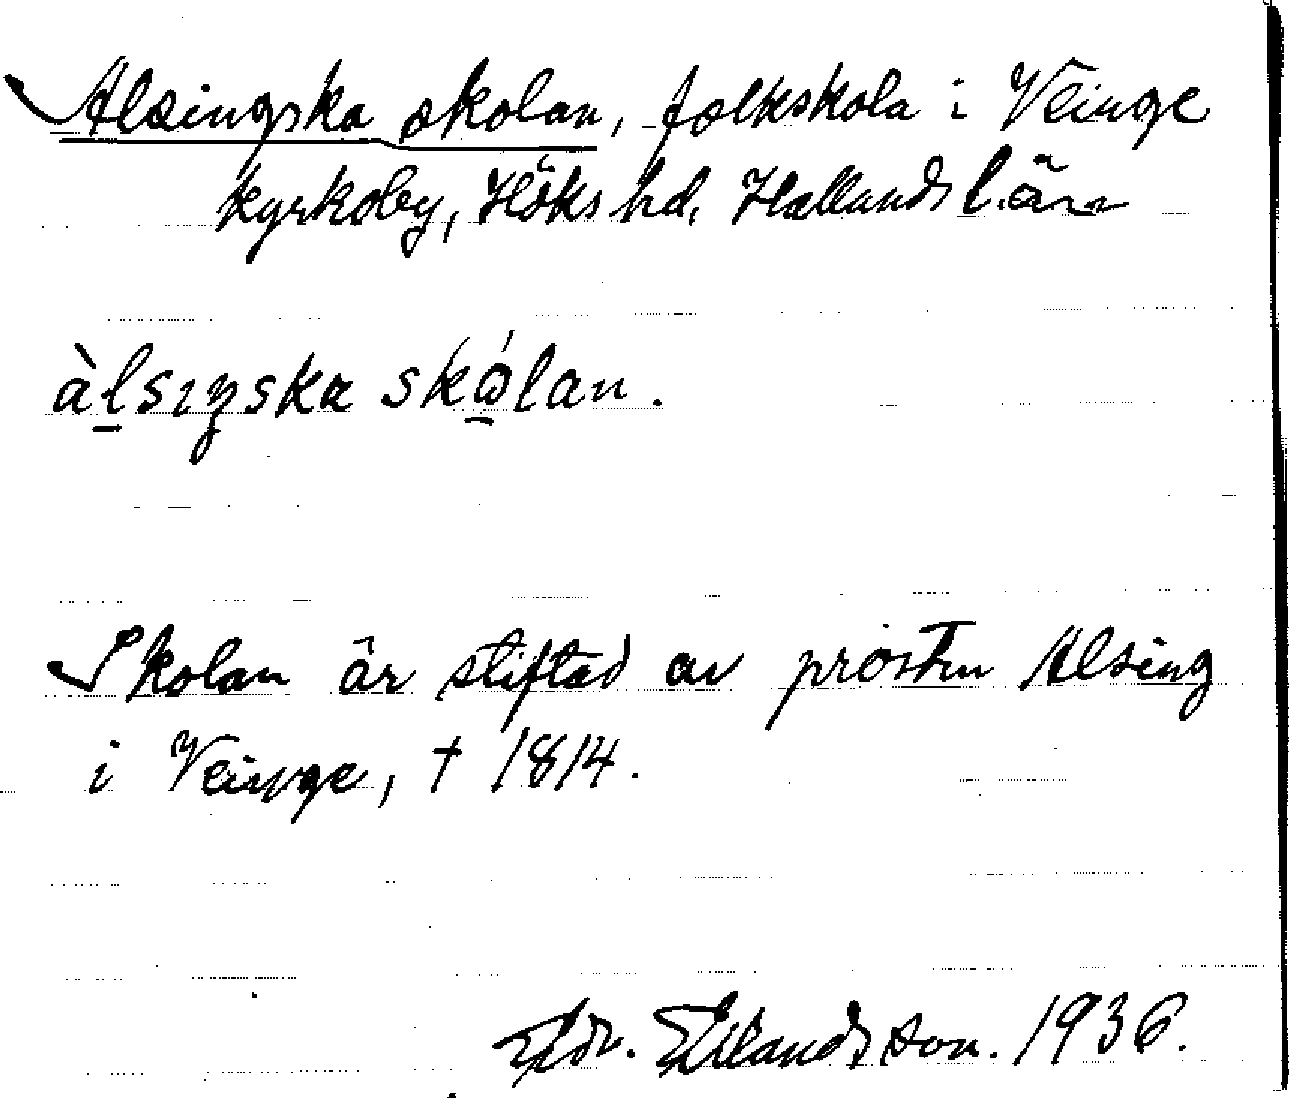 Alsingska skolan, folkskola i Veinge
kyrkoby, Höks hd, Hallands län
àl̠sıŋska skώ̠lan.
Skolan är stiftad av prosten Alsing
i Veinge, † 1814.
Erlandsson. 1936.